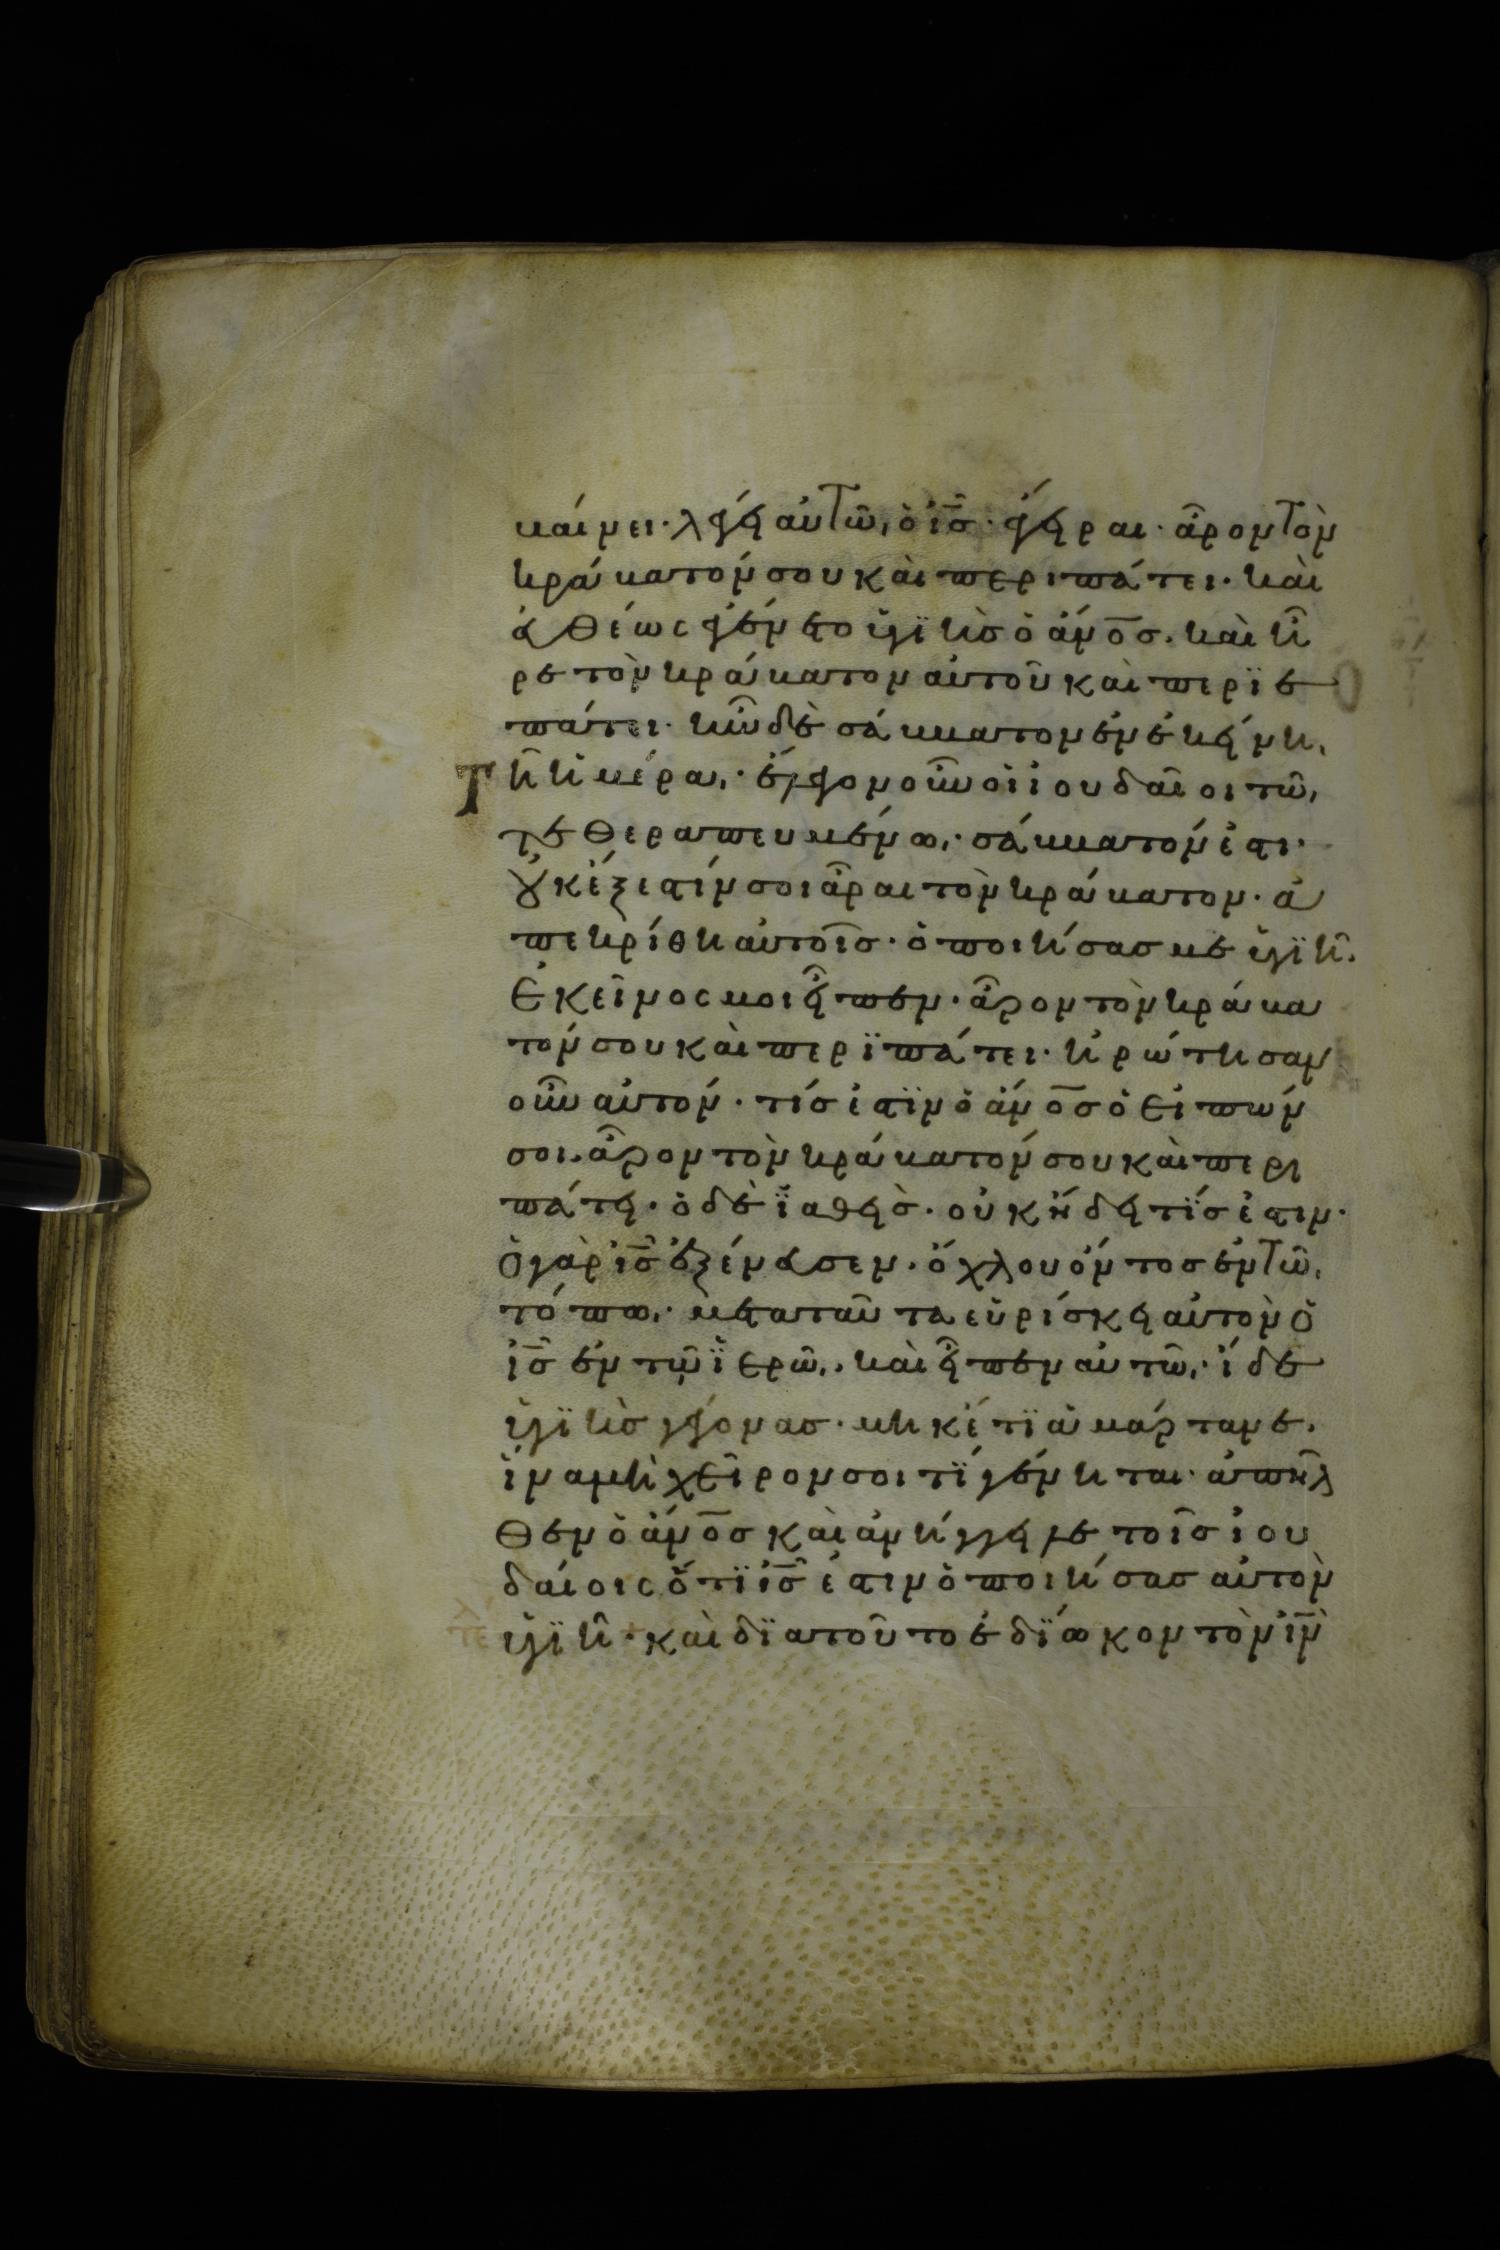 βαίνει· λέγει αὐτῶ, ὁ ις̄· ἔγειραι· ἆρον τὸν
κράβατόν σου καὶ περιπάτει· καὶ
εὐθέως ἐγένετο ὑγϊὴς ὁ ἄνο̄ς· καὶ ἦ
ρε τὸν κράβατον αὐτοῦ καὶ περϊε
πάτει· ἦν δὲ σάββατον ἐν ἐκείνη,
τῆ ἡμέρα,· ἔλεγον οὖν οἱ ἰουδαῖοι τῶ,
τεθεραπευμένω,· σάββατόν ἐστι·
οὐκ ἔξεστίν σοι ἆραι τὸν κράβατον· ἀ
πεκρίθη αὐτοῖς· ὁ ποιήσας με ὑγϊῆ·
Ἐκεῖνος μοι εἶπεν· ἆρον τὸν κράβα
τόν σου καὶ περϊπάτει· ἠρώτησαν
οὖν αὐτόν· τίς ἐστϊν ὁ ἄνο̄ς ὁ εἰπών
σοι· ἆρον τὸν κράβατόν σου καὶ περι
πάτει· ὁ δὲ ϊαθεὶς· οὐκ ἤδει τΐς ἐστιν·
ὁ γὰρ ις̄ ἐξένευσεν· ὄχλου ὄντος ἐν τῶ,
τόπω,· μετα ταῦτα εὑρίσκει αὐτὸν ὁ
ις̄ ἐν τῶ ϊερῶ,· καὶ εἶπεν αὐτῶ,· ἴδε
ὑγϊὴς γέγονας· μηκέτϊ ἁμάρτανε·
ἵνα μὴ χεῖρον σοι τΐ γένηται· ἀπῆλ
θεν ὁ ἄνο̄ς καὶ ἀνήγγειλε τοῖς ἰου
δαίοις ὅτϊ ις̄ ἐστιν ὁ ποιήσας αὐτὸν
ὑγϊῆ· καὶ δϊατοῦτο ἐδΐωκον τὸν ιν̄